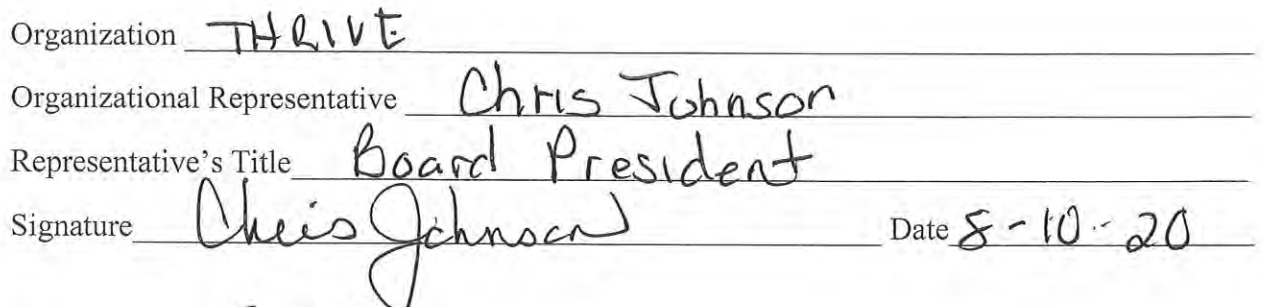 Organization THRIVE
Organizational Representative Chris Johnson
Representative's Title Board President
Signature Chris Johnson Date 8-10-20